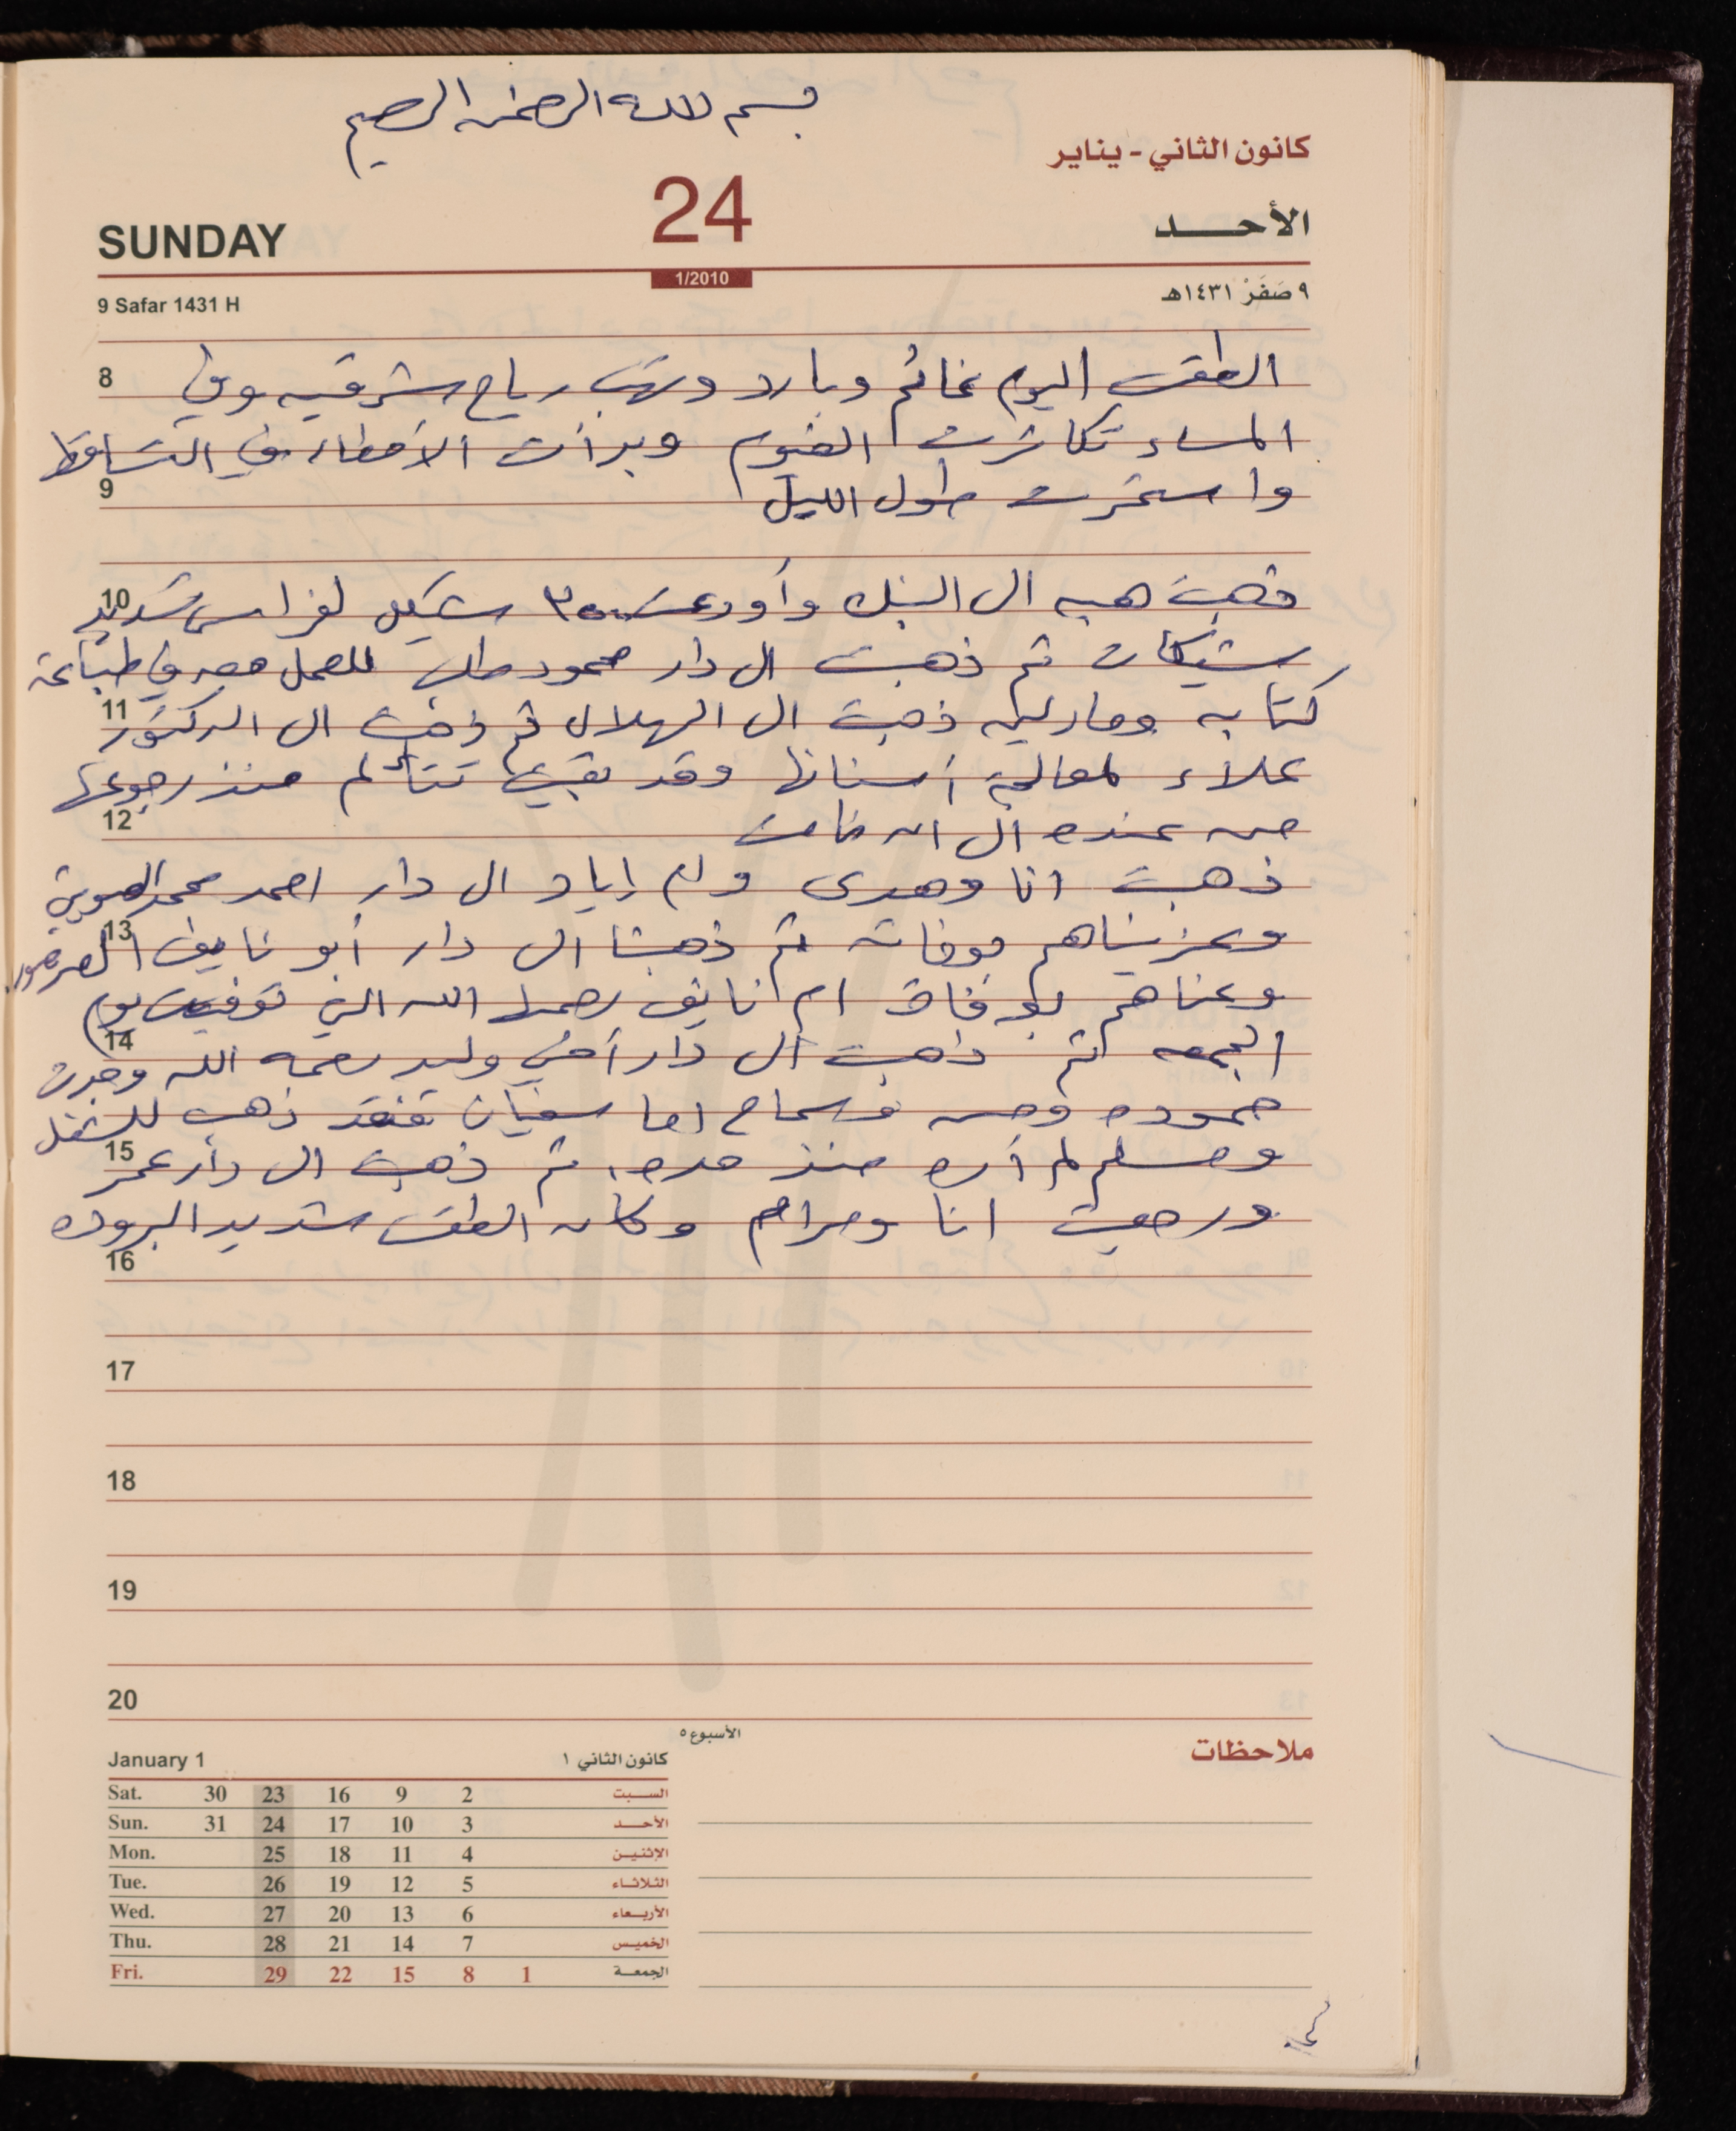 بسم الله الرحمن الرحيم
كانون الثاني - يناير
SUNDAY 24 الأحـــد
1/2010
9 Safar 1431 H ٩ صَفَرْ ١٤٣١هـ
8 الطقس اليوم غائم وبارد وتهب رياح شرقيه وفي
المساء تكاثرت الغيوم وبدأت الأمطار في التساقط
9 واستمرت طول الليل
10 ذهبت هبه ال البنك وأودعت ٣٥٠٠ شيكل لفراس تسديد
شيكات ثم ذهبت ال دار محمود طلب للعمل معه في طباعة
11 كتابه وماريه ذهبت ال الهلال ثم ذهبت ال الدكتور
علاء لمعالجة أسنانها وقد بقيت تتألم منذ رجوعها
12 من عنده ال ان نامت
ذهبت انا وهدى وام إياد ال دار احمد محمد
13 وعزيناهم بوفاته ثم ذهبنا ال دار أبو نايف
وعزناهم بوفاة ام نايف رحمها الله التي توفيت يوم
14 الجمعه ثم ذهبت ال دار أخي وليد رحمه الله وجدت
حموده وحسن وسماح اما سفيان فقد ذهب للشغل
15 ومسلم لم أره منذ مده. ثم ذهبت ال دار عمر
ورجعت انا ومرام وكان الطقس شديد البروده
16
17
18
19
20
الأسبوع ٥
ملاحظات
January 1 كانون الثاني ١
Sat. 30 23 16 9 2 السبت
Sun. 31 24 17 10 3 الأحد
Mon. 25 18 11 4 الإثنين
Tue. 26 19 12 5 الثلاثاء
Wed. 27 20 13 6 الأربعاء
Thu. 28 21 14 7 الخميس
Fri. 29 22 15 8 1 الجمعة